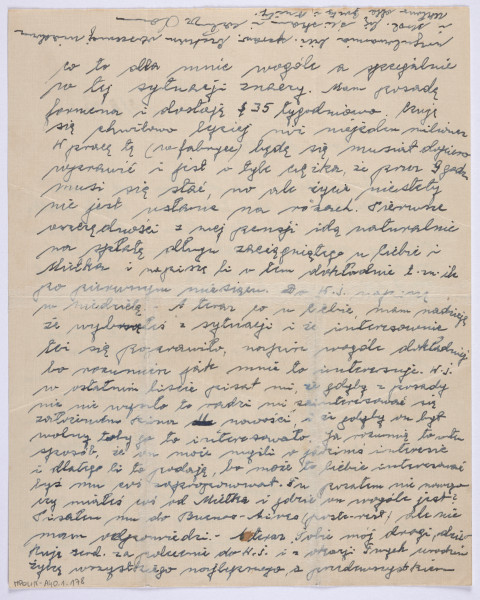 co to dla mnie wogóle a specjalnie
w tej sytuacji znaczy. Mam posadę
formena i dostaję $35 tygodniowo. Czuję
się chwilowo lepiej niż niejeden milioner
W pracę tę (w fabryce) będę się musiał dopiero
wprawić i jest o tyle ciężka, że przez 9 godzin
musi się stać, no ale życie niestety
nie jest usłane na różach. Pierwsze
oszczędności z mej pensji idą naturalnie
na spłatę długu zaciągniętego u Ciebie i
Mietka i napiszę Ci o tem dokładnie t.zn. ile
po pierwszym miesiącu. Do W.J. napiszę
w niedzielę. - A teraz co u Ciebie, mam nadzieję
że wybrnąłeś z sytuacji i że interesownie
Ci się poprawiło, napisz wogóle dokładniej
bo rozumiesz jak mnie to interesuje. W.J.
w ostatnim liście pisał mi, że gdyby z posady
nic nie wyszło to radzi mi zainteresować się
kina nowości, i że gdyby on był
wolny toby go to interesowało. Ja rozumię to w ten
sposób, że on może myśli o jakimś interesie
i dlatego Ci to podaję, bo może to Ciebie interesować
byś mu coś zaproponował. Tu pozatem nic nowego
czy miałeś coś od Mietka i gdzie on wogóle jest?
Pisałem mu do Buenos-Aires (poste-rest) ale nie
mam odpowiedzi. - A teraz Tobie mój drogi dzię-
kuję serd. za polecenie do W.J. i z okazji Twych urodzin
życzę wszystkiego najlepszego, a przedewszystkiem
MPOLIN-A40.1.178